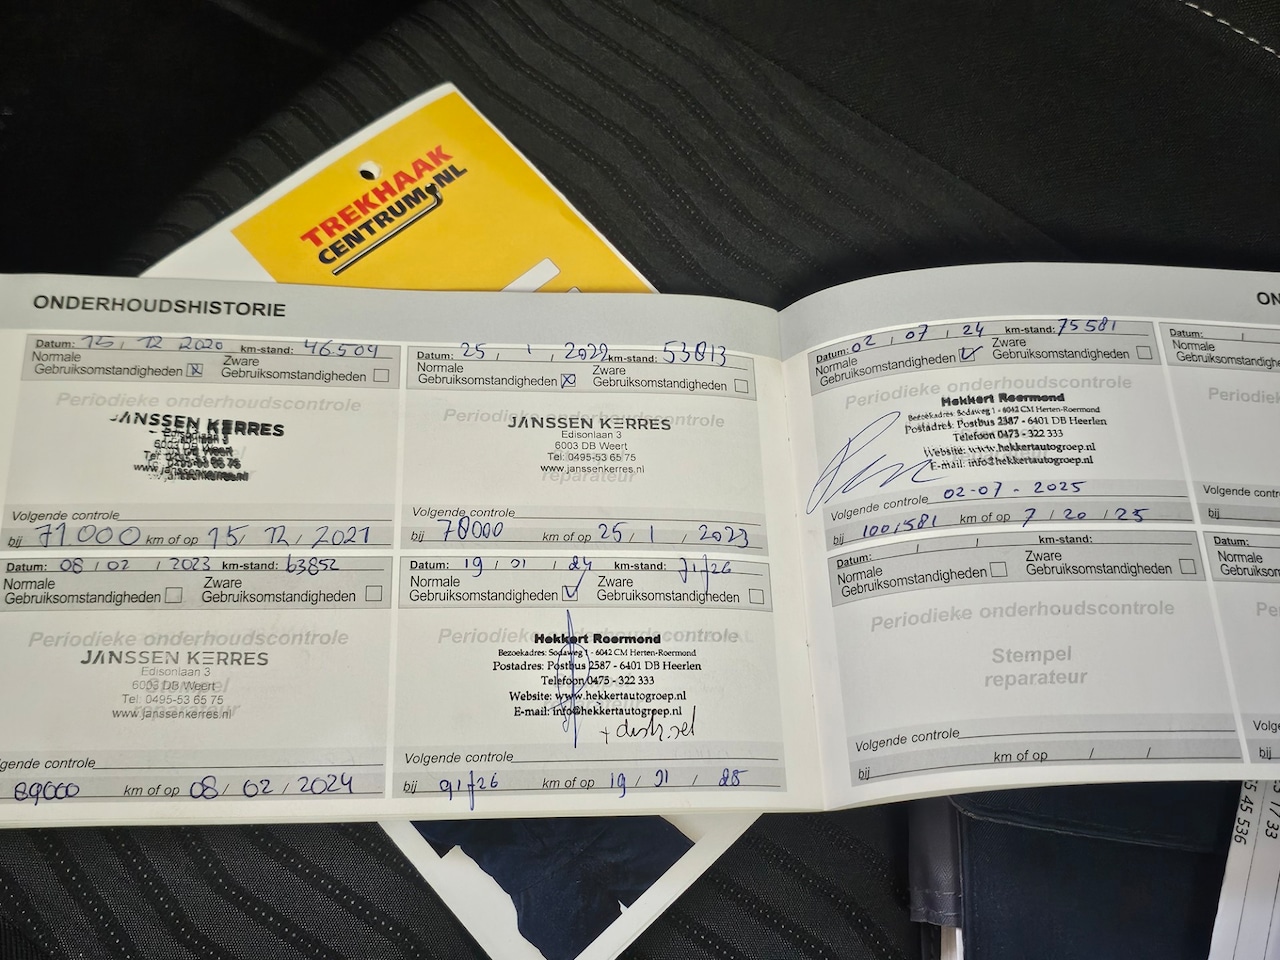 TREKHAAK
CENTRUM.NL
ONDERHOUDSHISTORIE
Datum: 15 / 12 2020 km-stand: 46.504
Normale Gebruiksomstandigheden ☒ Zware Gebruiksomstandigheden ☐
Periodieke onderhoudscontrole
JANSSEN KERRES
Edisonlaan 3
6003 DB Weert
Tel: 0495-53 65 75
www.janssenkerres.nl
Volgende controle
bij 71.000 km of op 15 / 12 / 2021
Datum: 25 / 1 / 2022 km-stand: 53813
Normale Gebruiksomstandigheden ☒ Zware Gebruiksomstandigheden ☐
Periodieke onderhoudscontrole
JANSSEN KERRES
Edisonlaan 3
6003 DB Weert
Tel: 0495-53 65 75
www.janssenkerres.nl
reparateur
Volgende controle
bij 78000 km of op 25 / 1 / 2023
Datum: 08 / 02 / 2023 km-stand: 63852
Normale Gebruiksomstandigheden ☐ Zware Gebruiksomstandigheden ☐
Periodieke onderhoudscontrole
JANSSEN KERRES
Edisonlaan 3
6003 DB Weert
Tel: 0495-53 65 75
www.janssenkerres.nl
reparateur
Volgende controle
89000 km of op 08 / 02 / 2024
Datum: 19 / 01 / 24 km-stand:
Normale Gebruiksomstandigheden ☑ Zware Gebruiksomstandigheden ☐
Periodieke onderhoudscontrole
Hekkert Roermond
Bezoekadres: Sodaweg 1 - 6042 CM Herten-Roermond
Postadres: Postbus 2587 - 6401 DB Heerlen
Telefoon 0475 - 322 333
Website: www.hekkertautogroep.nl
E-mail: info@hekkertautogroep.nl
Volgende controle
bij km of op 19 / 01 / 25
Datum: 02 / 07 / 24 km-stand: 75581
Normale Gebruiksomstandigheden ☑ Zware Gebruiksomstandigheden ☐
Periodieke onderhoudscontrole
Hekkert Roermond
Bezoekadres: Sodaweg 1 - 6042 CM Herten-Roermond
Postadres: Postbus 2587 - 6401 DB Heerlen
Telefoon 0475 - 322 333
Website: www.hekkertautogroep.nl
E-mail: info@hekkertautogroep.nl
Volgende controle 02-07-2025
bij km of op 7 / 20 / 25
Datum: / / km-stand:
Normale Gebruiksomstandigheden ☐ Zware Gebruiksomstandigheden ☐
Periodieke onderhoudscontrole
Stempel
reparateur
Volgende controle
bij km of op / /
ON
Datum: /
Normale
Periodieke
Volgende controle
bij
Datum:
Normale
Volgende
bij
45 536